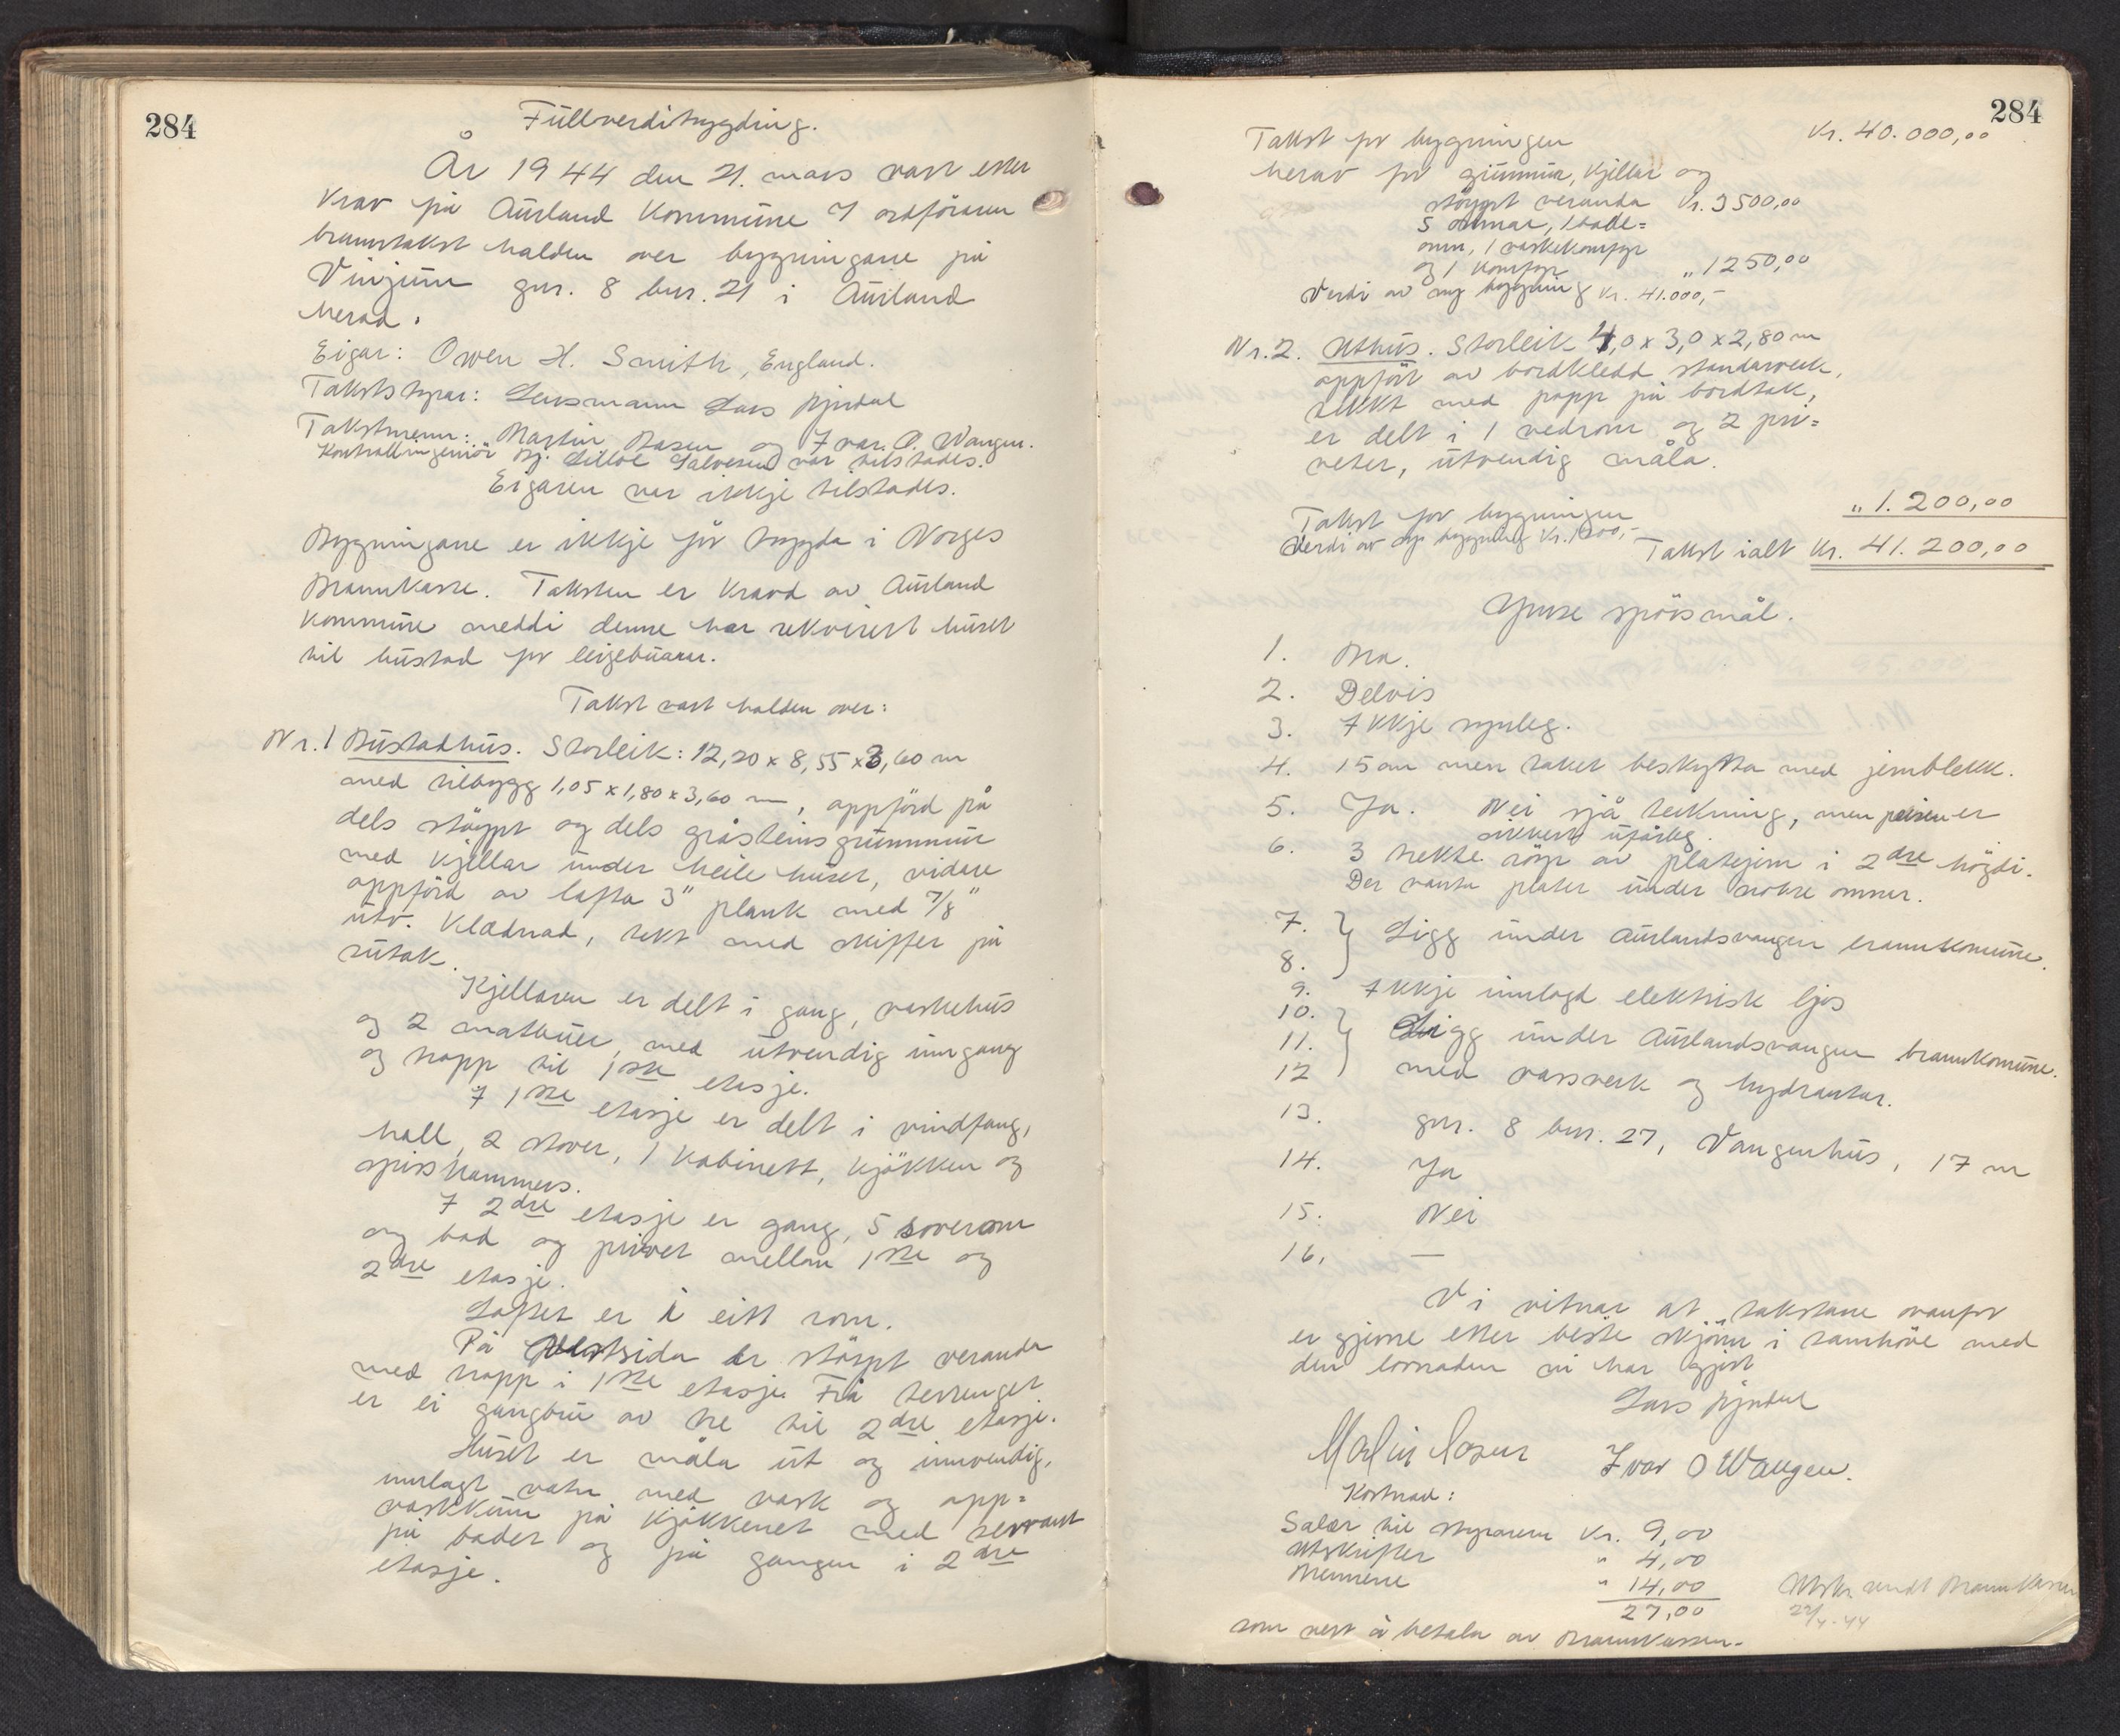 284
Fullverditrygding.
År 1944 den 21. mars vart etter
krav på Aurland kommune v/ ordföraren
branntakst halden over bygningane på
Vinjum gnr. 8 bnr. 21 i Aurland
herad.
Eigar: Owen H. Smith, England.
Takststyrar: Lensmann Lars
Takstmenn: Martin Åasen og Ivar O. Wangen.
Kontrollingeniör Lilloe Salvesen var tilstades.
Eigaren var ikkje tilstades.
Bygningane er ikkje för trygda i Norges
Brannkasse. Taksten er kravd av Aurland
kommune meddi denne har rekvirert huset
til bustad for leigebuarar.
Takst vart halden over:
Nr. 1 Bustadhus. Storleik: 12,20 x 8,55 x 3,60 m
med tilbygg 1,05 x 1,80 x 3,60 m, oppförd på
dels stöypt og dels gråsteinsgrunnmur
med kjellar under heile huset, vidare
oppförd av lafta 3" plank med 7/8"
utv. klædnad, tekt med skiffer på
sutak.
Kjellaren er delt i gang, vaskehus
og 2 matbuer, med utvendig inngang
og trapp til 1ste etasje.
I 1ste etasje er delt i vindfang,
hall, 2 stover, 1 kabinett, kjökken og
spisskammers.
I 2dre etasje er gang, 5 soverom
og bad og privet mellom 1ste og
2dre etasje.
Loftet er i eitt rom.
På vestsida er stöypt veranda
med trapp i 1ste etasje. Frå terrenget
er ei gangbru av tre til 2dre etasje.
Huset er måla ut og innvendig,
innlagt vatn med vask og opp=
vaskkum på kjökkenet med servant
på badet og på gangen i 2dre
etasje.
284
Takst for bygningen Kr. 40.000,00
herav for grunnmur, kjellar og
stöypt veranda Kr. 3500,00
5 omnar, 1 bade=
omn, 1 vaskekomfyr
og 1 komfyr „ 1250,00
Verdi av ny bygning Kr. 41.000,-
Nr. 2. Uthus. Storleik 4,0 x 3,0 x 2,80 m
oppfört av bordkledd standarverk,
tekkt med papp på bordtak,
er delt i 1 vedrom og 2 pri=
veter, utvendig måla.
Takst for bygningen „ 1.200,00
Verdi av ny bygning Kr. 1200,-
Takst ialt Kr. 41.200,00
Ymse spörsmål.
1. Bra.
2. Delvis
3. Ikkje synleg.
4. 15 cm men taket beskytta med jernblekk.
5. Ja. Nei sjå teikning, men peisen er
sikkert ufårleg.
6. 3 trekte röyr av platejern i 2dre högdi.
Der vanta plater under nokre omner.
7. } Ligg under Aurlandsvangen brannkomune.
8.
9. Ikkje innlagd elektrisk ljos
10. } Ligg under Aurlandsvangen brannkomune.
11.
12 med vassverk og hydrantar.
13. gnr. 8 bnr. 27, Vangenhus, 17 m
14. Ja
15. Nei
16. —
Vi vitnar at takstane ovanfor
er gjevne etter beste skjönn i samhöve med
den lovnaden vi har gjort
Lars
Martin Åasen Ivar O Wangen.
Kostnad:
Salær til styraren Kr. 9,00
Utskrifter „ 4,00
Mennene „ 14,00
27,00
som vert å betala av Brannkassen.
Utskr. sendt Brannkassen
22/4-44